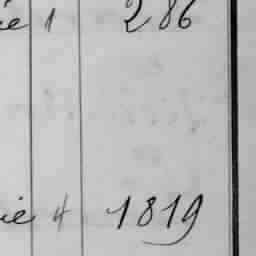 ie 1 286
ie 4 1819